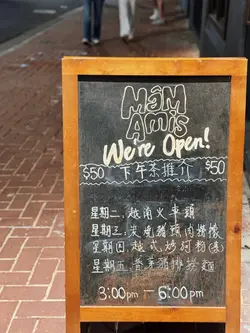 MâM
AMis
We're Open!
$50 下午茶推介 $50
星期二, 越南火車頭
星期三, 炭燒豬頸肉檬
星期四 越式炒河粉(素)
星期五 香茅豬排撈麵
3:00pm — 6:00pm